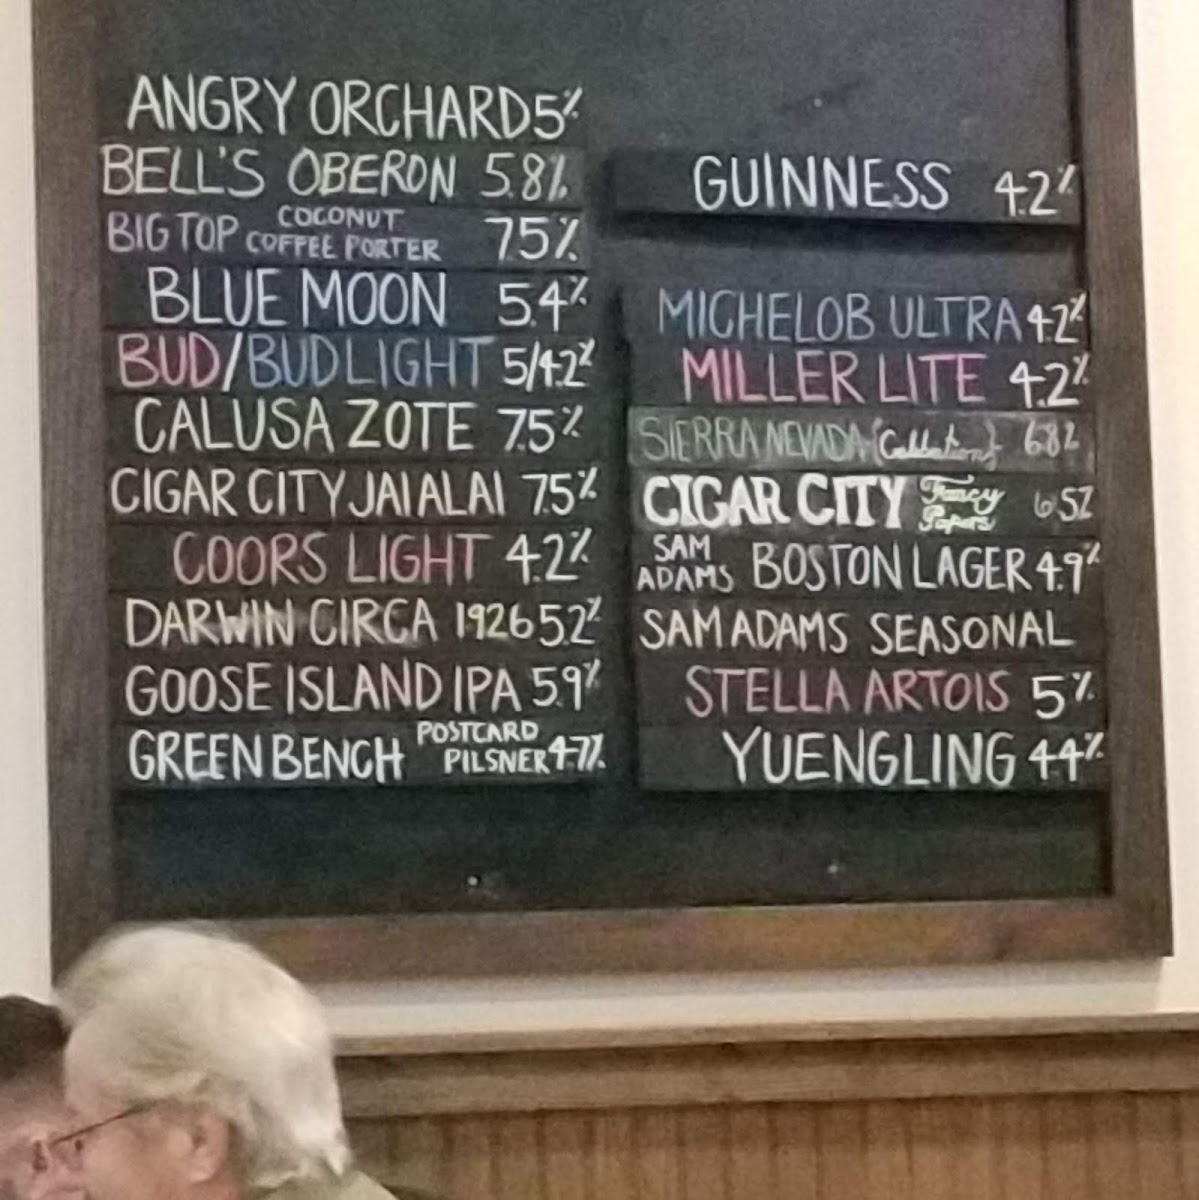 ANGRY ORCHARD 5%
BELL'S OBERON 5.8%
BIG TOP COCONUT COFFEE PORTER 7.5%
BLUE MOON 5.4%
BUD/BUD LIGHT 5/4.2%
CALUSA ZOTE 7.5%
CIGAR CITY JAI ALAI 7.5%
COORS LIGHT 4.2%
DARWIN CIRCA 1926 5.2%
GOOSE ISLAND IPA 5.9%
GREEN BENCH POSTCARD PILSNER 4.7%
GUINNESS 4.2%
MICHELOB ULTRA 4.2%
MILLER LITE 4.2%
SIERRA NEVADA (Celebration) 6.8%
CIGAR CITY Fancy Papers 6.5%
SAM ADAMS BOSTON LAGER 4.9%
SAM ADAMS SEASONAL
STELLA ARTOIS 5%
YUENGLING 4.4%